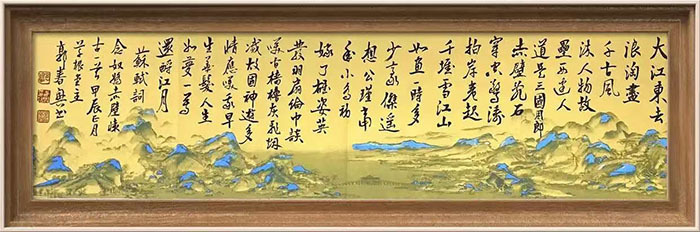 大江東去
浪淘盡
千古風
流人物故
壘西邊人
道是三國周郎
赤壁亂石
穿空驚濤
拍岸卷起
千堆雪江山
如畫一時多
少豪傑遙
想公瑾當
年小喬初
嫁了雄姿英
發羽扇綸巾談
笑檣櫓灰飛烟
滅故國神遊多
情應笑我早
生華髮人生
如夢一尊
還酹江月
蘇軾詞
念奴嬌赤壁懷
古一首甲辰正月